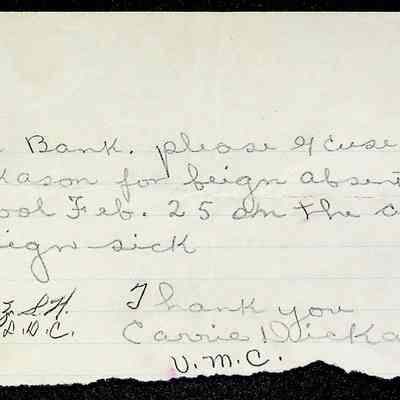 Bank. please Excuse
kason for beign absent
ool Feb. 25 on the
eign sick
S.H. Thank you
D.D.C. Carrie Dicka
V.M.C.